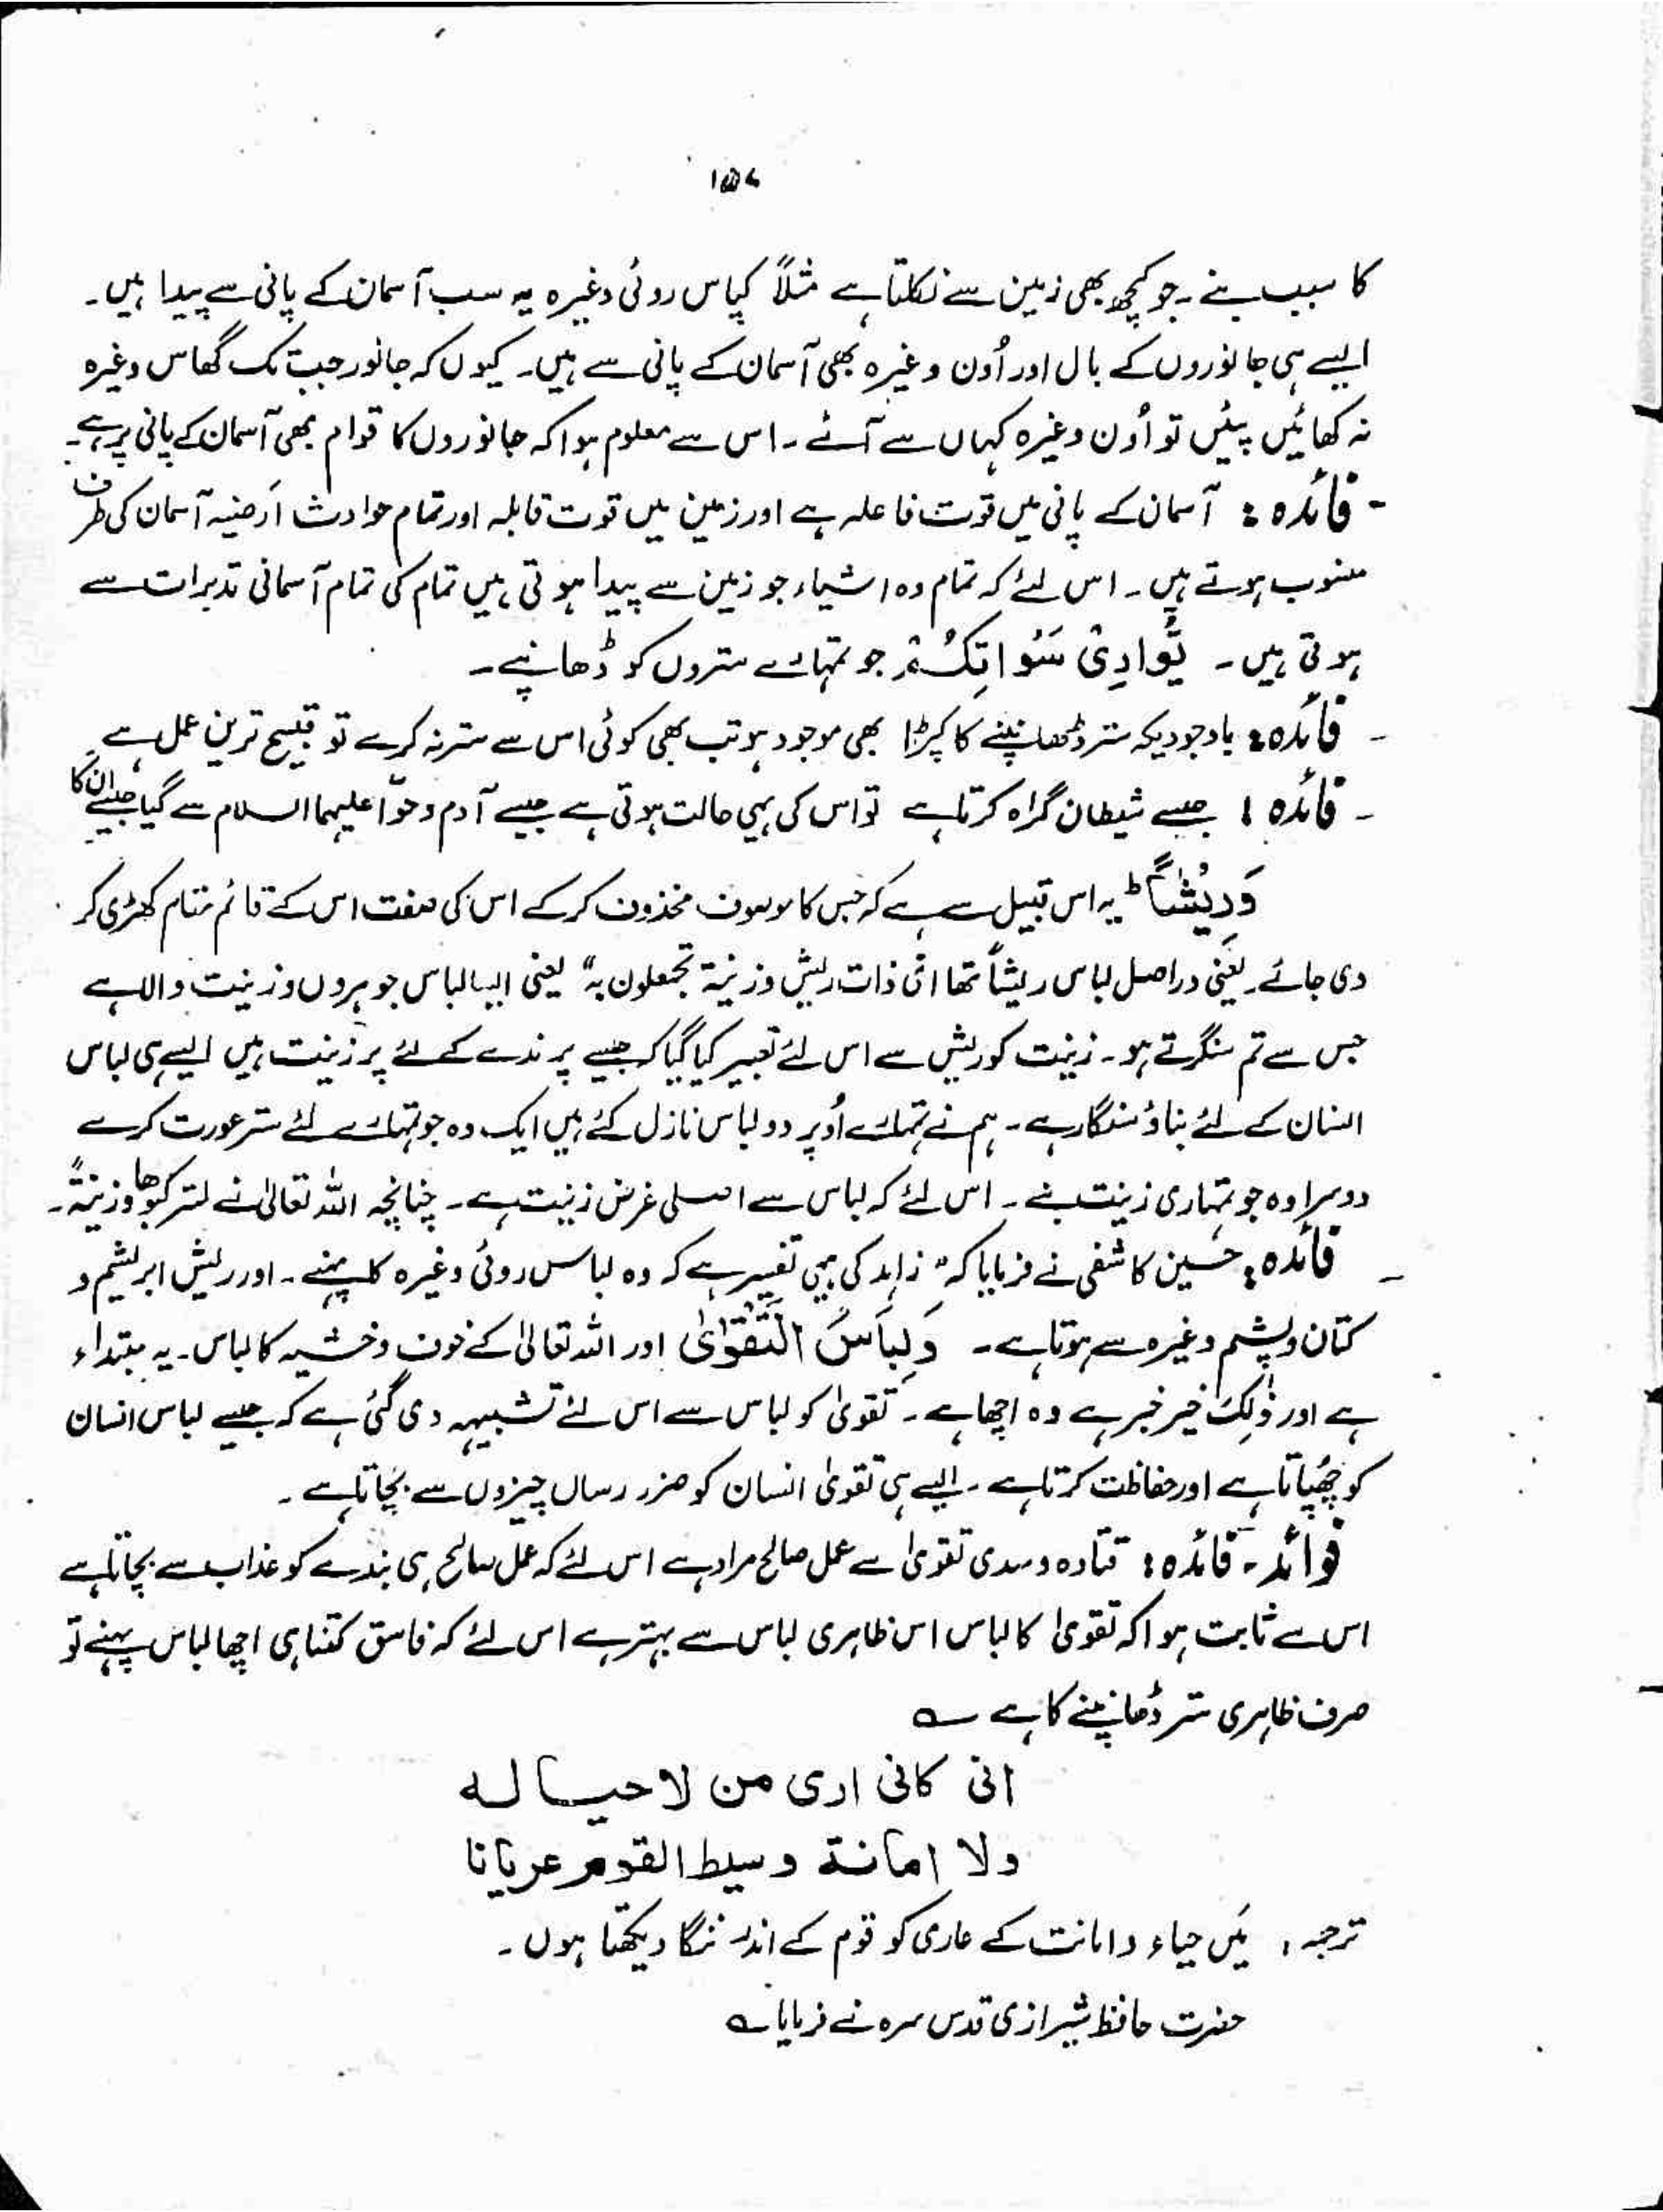 ۱۵۷
کا سبب بنے ۔ جو کچھ بھی زمین سے نکلتا ہے مثلاً کپاس روئی وغیرہ یہ سب آسمان کے پانی سے پیدا ہیں ۔
ایسے ہی جانوروں کے بال اور اُون وغیرہ بھی آسمان کے پانی سے ہیں ۔ کیوں کہ جانور جب تک گھاس وغیرہ
نہ کھائیں پیئں تو اُون وغیرہ کہاں سے آئے ۔ اس سے معلوم ہوا کہ جانوروں کا قوام بھی آسمان کے پانی پر ہے ۔
- فائدہ : آسمان کے پانی میں قوت فاعلہ ہے اور زمین میں قوت قابلہ اور تمام حوادث اَرضیہ آسمان کی طرف
منسوب ہوتے ہیں ۔ اس لئے کہ تمام وہ اشیاء جو زمین سے پیدا ہوتی ہیں تمام کی تمام آسمانی تدبرات سے
ہوتی ہیں ۔ یُّوَادِیْ سَوْاٰتِکُمْ جو تمہارے ستروں کو ڈھانپے ۔
- فائدہ : باوجودیکہ ستر ڈھانپنے کا کپڑا بھی موجود ہو تب بھی کوئی اس سے ستر نہ کرے تو قبیح ترین عمل ہے ۔
- فائدہ ! جسے شیطان گمراہ کرتا ہے تو اس کی یہی حالت ہوتی ہے جیسے آدم و حوّا علیہما السلام سے کیا جیسے ان کا
وَرِیْشًا ط یہ اس قبیل سے ہے کہ جس کا موصوف محذوف کر کے اس کی صفت اس کے قائم مقام کھڑی کر
دی جائے ۔ یعنی دراصل لباس ریشاً تھا ای ذات ریش و زینۃ تجملون بہ" یعنی ایسا لباس جو پروں و زینت والا ہے
جس سے تم سنگرتے ہو ۔ زینت کو ریش سے اس لئے تعبیر کیا گیا کہ جیسے پرندے کے لئے پر زینت ہیں ایسے ہی لباس
انسان کے لئے بناؤ سنگار ہے ۔ ہم نے تمہارے اُوپر دو لباس نازل کئے ہیں ایک وہ جو تمہارے لئے ستر عورت کرے
دوسرا وہ جو تمہاری زینت بنے ۔ اس لئے کہ لباس سے اصلی غرض زینت ہے ۔ چنانچہ اللہ تعالیٰ نے لترکبوھا وزینۃً ۔
- فائدہ : حسین کاشفی نے فرمایا کہ" زاہد کی یہی تفسیر ہے کہ وہ لباس روئی وغیرہ کا پہنے ۔ اور ریش ابریشم و
کتان و پشم وغیرہ سے ہوتا ہے ۔ وَلِبَاسُ التَّقْوٰی اور اللہ تعالیٰ کے خوف و خشیہ کا لباس ۔ یہ مبتداء
ہے اور ذٰلِکَ خیر خبر ہے وہ اچھا ہے ۔ تقویٰ کو لباس سے اس لئے تشبیہہ دی گئی ہے کہ جیسے لباس انسان
کو چھُپاتا ہے اور حفاظت کرتا ہے ۔ ایسے ہی تقویٰ انسان کو ضرر رساں چیزوں سے بچاتا ہے ۔
فوائد - فائدہ : قتادہ و سدی تقویٰ سے عمل صالح مراد ہے اس لئے کہ عمل صالح ہی بندے کو عذاب سے بچاتا ہے
اس سے ثابت ہوا کہ تقویٰ کا لباس اس ظاہری لباس سے بہتر ہے اس لئے کہ فاسق کتنا ہی اچھا لباس پہنے تو
صرف ظاہری ستر ڈھانپنے کا ہے ؎
انی کانی اری من لا حیا لہ
ولا امانۃ وسط القوم عریانا
ترجمہ : مَیں حیاء و امانت کے عاری کو قوم کے اندر ننگا دیکھتا ہوں ۔
حضرت حافظ شیرازی قدس سرہ نے فرمایا ؎